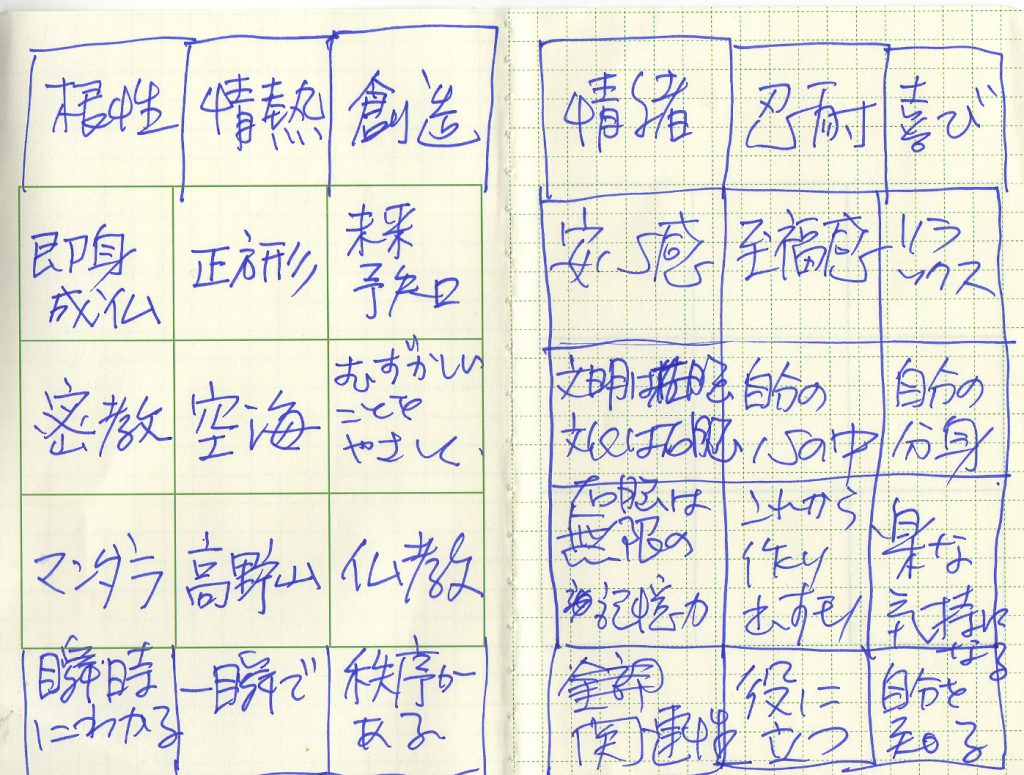 根性 情熱 創造
即身 正方形 未来
成仏 予知
密教 空海 むずかしい
ことを
やさしく
マンダラ 高野山 仏教
瞬時 一瞬で 秩序が
にわかる ある
情緒 忍耐 喜び
安心感 至福感 リラ
ックス
文明は 脳 自分の 自分の
文化は右脳 心の中 分身
右脳は これから 楽な
無限の 作り 気持に
記憶力 出すモノ なる
全部 役に 自分を
関連性 立つ 知る